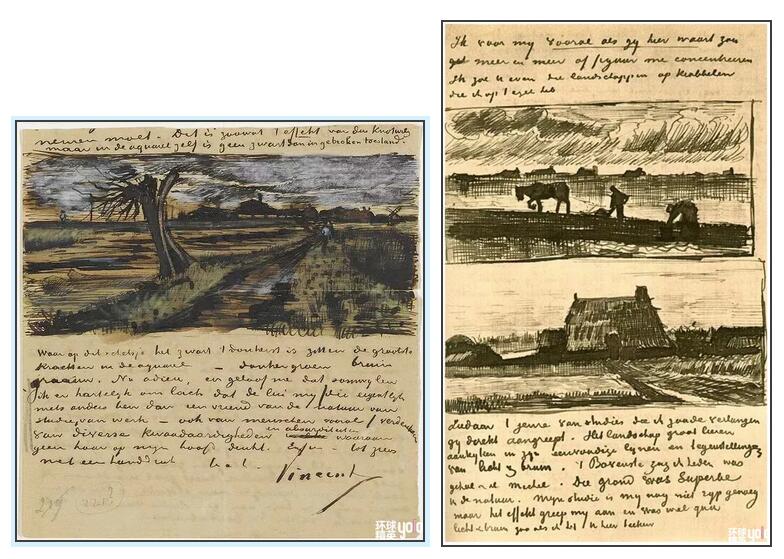 nemen moet. Dit is zoowat 't effekt van den knotwilg
maar in de aquarel zelf is geen zwart dan in gebroken toestand.
Waar op dit schetsje het zwart 't donkerst is zitten de grootste
krachten in de aquarel – donkergroen bruin
graauw. Nu adieu, en geloof me dat somwylen
ik er hartelyk om lach dat de lui my /die eigentlyk
niets anders ben dan een vriend van de natuur van
studie, van werk – ook van menschen vooral/ verdenken
van diverse kwaadaardigheden en absurditeiten waaraan
geen haar op myn hoofd denkt. Enfin – tot ziens
met een handdruk t. à t.
Vincent
环球
精英 yolo
Ik voor my vooral als gy hier waart zou
meer en meer op figuur me concentreeren
Ik zal U even die landschappen op krabbelen
die ik op 't ezel heb
Ledaar 't genre van studies die ik zoude verlangen
gy direkt aangreept. Het landschap groot leeren
aankyken in zyn eenvoudige lynen en tegenstellingen
van licht & bruin. 't Bovenste zag ik heden was
geheel à la Michel. Die grond was Superbe
in de natuur. Myn studie is my nog niet ryp genoeg
maar het effekt greep my aan en was wel qua
licht & bruin zoo als ik het U hier teeken
环球
精英 yo